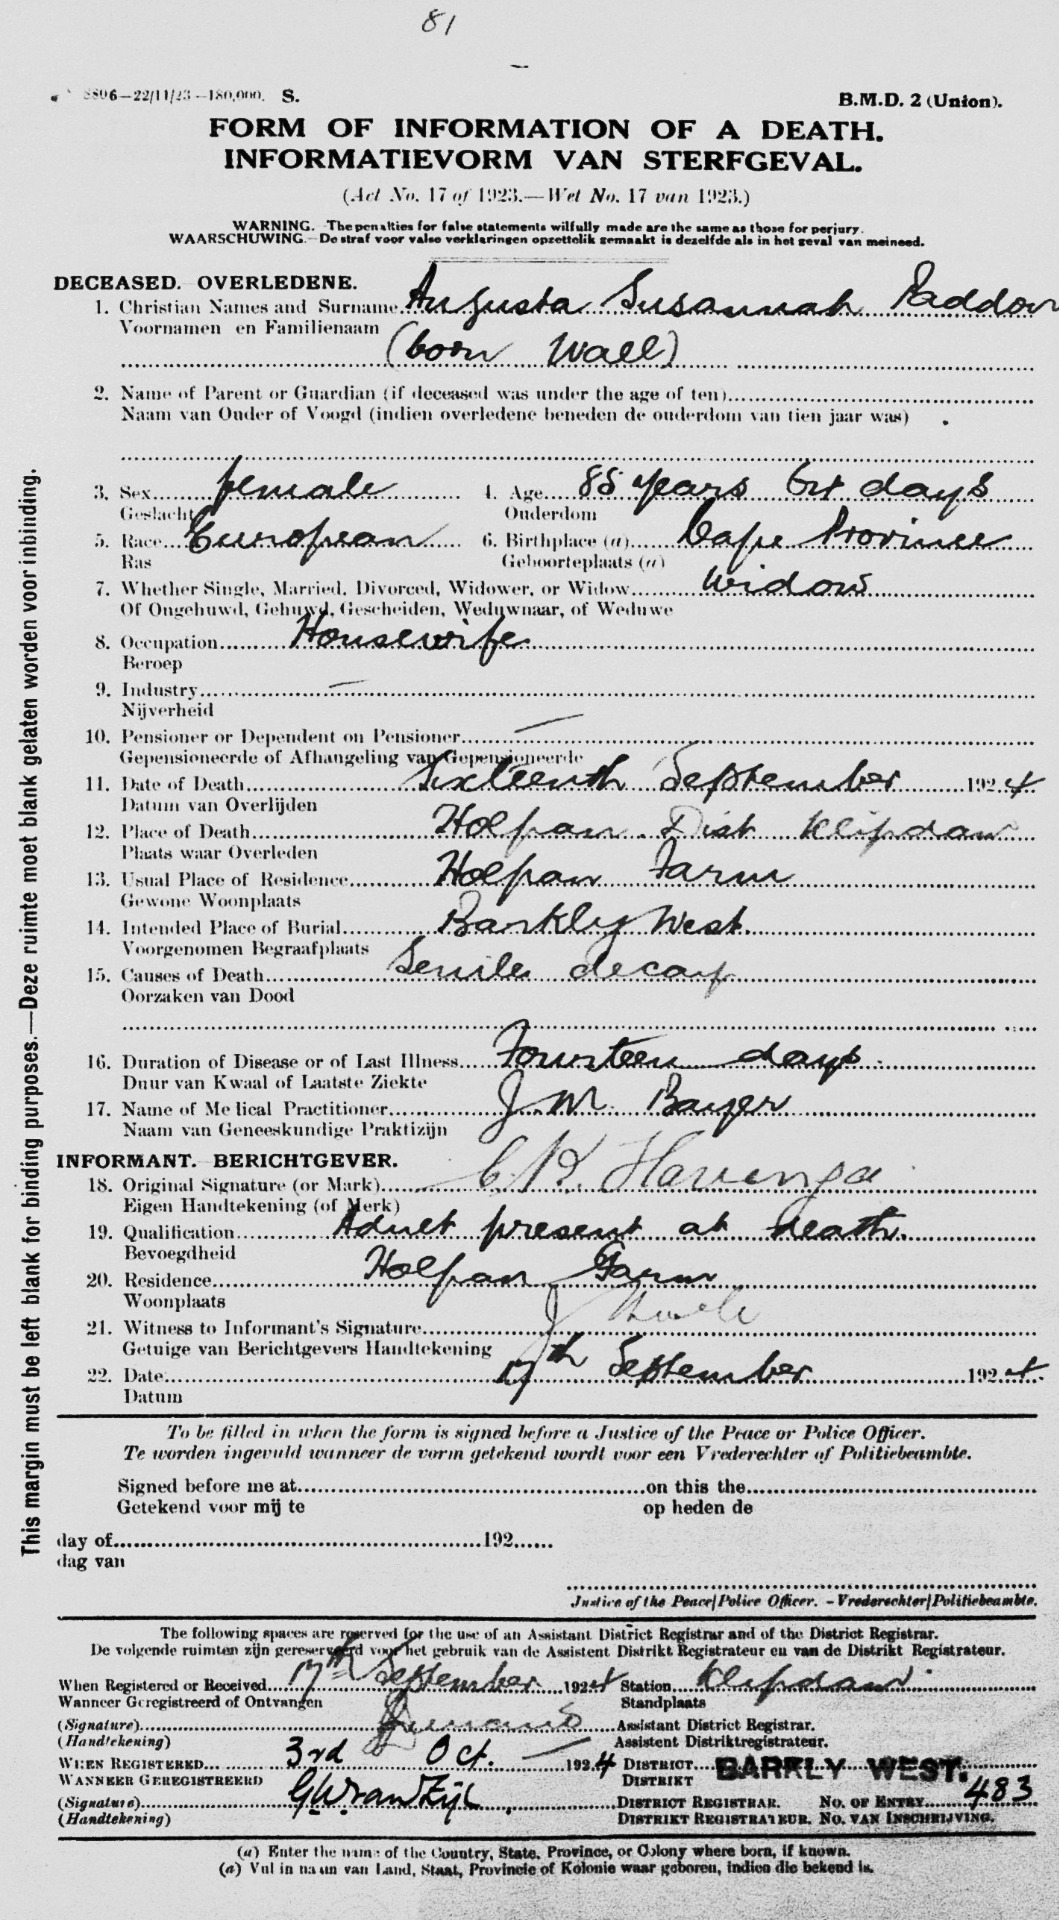 81
8896—22/11/23—180,000. S.
B.M.D. 2 (Union).
FORM OF INFORMATION OF A DEATH.
INFORMATIEVORM VAN STERFGEVAL.
(Act No. 17 of 1923.—Wet No. 17 van 1923.)
WARNING.—The penalties for false statements wilfully made are the same as those for perjury.
WAARSCHUWING.—De straf voor valse verklaringen opzettelik gemaakt is dezelfde als in het geval van meineed.
DECEASED. OVERLEDENE.
1. Christian Names and Surname Augusta Susannah Paddon
Voornamen en Familienaam
(born Wall)
2. Name of Parent or Guardian (if deceased was under the age of ten)
Naam van Ouder of Voogd (indien overledene beneden de ouderdom van tien jaar was)
3. Sex female 4. Age 88 years 64 days
Geslacht Ouderdom
5. Race European 6. Birthplace (a) Cape Province
Ras Geboorteplaats (a)
7. Whether Single, Married, Divorced, Widower, or Widow Widow
Of Ongehuwd, Gehuwd, Gescheiden, Weduwnaar, of Weduwe
8. Occupation Housewife
Beroep
9. Industry —
Nijverheid
10. Pensioner or Dependent on Pensioner —
Gepensioneerde of Afhangeling van Gepensioneerde
11. Date of Death Sixteenth September 1924
Datum van Overlijden
12. Place of Death Holpan Dist Klipdam
Plaats waar Overleden
13. Usual Place of Residence Holpan Farm
Gewone Woonplaats
14. Intended Place of Burial Barkly West.
Voorgenomen Begraafplaats
15. Causes of Death Senile decay
Oorzaken van Dood
16. Duration of Disease or of Last Illness Fourteen days
Duur van Kwaal of Laatste Ziekte
17. Name of Medical Practitioner J. M. Bayer
Naam van Geneeskundige Praktizijn
INFORMANT. BERICHTGEVER.
18. Original Signature (or Mark) C. K. Havenga
Eigen Handtekening (of Merk)
19. Qualification Adult present at death.
Bevoegdheid
20. Residence Holpan Farm
Woonplaats
21. Witness to Informant's Signature J
Getuige van Berichtgevers Handtekening
22. Date 17th September 1924.
Datum
To be filled in when the form is signed before a Justice of the Peace or Police Officer.
Te worden ingevuld wanneer de vorm getekend wordt voor een Vrederechter of Politiebeambte.
Signed before me at on this the
Getekend voor mij te op heden de
day of 192
dag van
Justice of the Peace/Police Officer.—Vrederechter/Politiebeambte.
The following spaces are reserved for the use of an Assistant District Registrar and of the District Registrar.
De volgende ruimten zijn gereserveerd voor het gebruik van de Assistent Distrikt Registrateur en van de Distrikt Registrateur.
When Registered or Received 17th September 1924 Station Klipdam
Wanneer Geregistreerd of Ontvangen Standplaats
(Signature) Assistant District Registrar.
(Handtekening) Assistent Distriktregistrateur.
WHEN REGISTERED 3rd Oct. — 1924 DISTRICT BARKLY WEST.
WANNEER GEREGISTREERD DISTRIKT
(Signature) G.W. van Zijl DISTRICT REGISTRAR. NO. OF ENTRY 483
(Handtekening) DISTRIKT REGISTRATEUR. NO. VAN INSCHRIJVING.
(a) Enter the name of the Country, State, Province, or Colony where born, if known.
(a) Vul in naam van Land, Staat, Provincie of Kolonie waar geboren, indien die bekend is.
This margin must be left blank for binding purposes.—Deze ruimte moet blank gelaten worden voor inbinding.